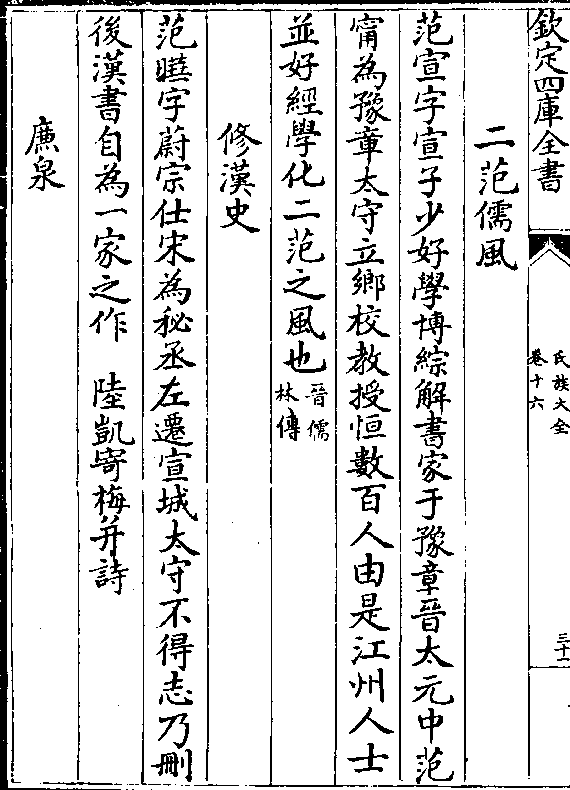 欽定四庫全書
氏族大全
卷十六
三十一
二范儒風
范宣字宣子少好學博綜解書家于豫章晉太元中范
甯為豫章太守立鄉校教授恒數百人由是江州人士
並好經學化二范之風也晉儒林傳
修漢史
范曄字蔚宗仕宋為秘丞左遷宣城太守不得志乃刪
後漢書自為一家之作 陸凱寄梅并詩
廉泉